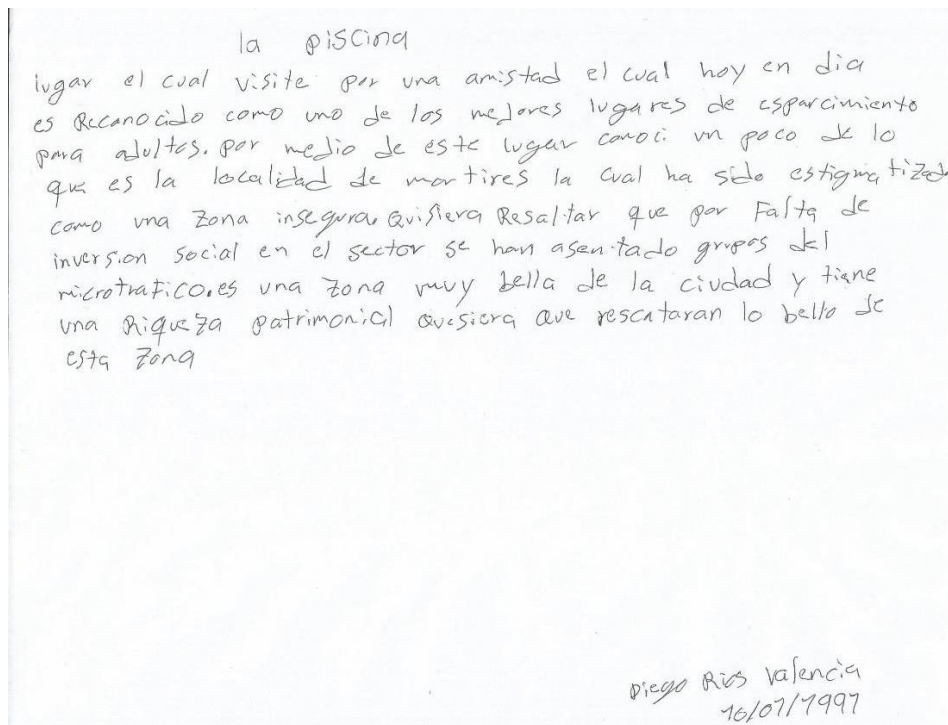 la piscina
lugar el cual visite por una amistad el cual hoy en dia
es Reconocido como uno de los mejores lugares de esparcimiento
para adultos. por medio de este lugar conoci un poco de lo
que es la localidad de martires la cual ha sido estigmatizada
como una zona insegura. Quisiera Resaltar que por Falta de
inversion social en el sector se han asentado grupos del
microtrafico. es una zona muy bella de la ciudad y tiene
una Riqueza patrimonial Quesiera Que rescataran lo bello de
esta zona
Diego Rios Valencia
16/07/1997